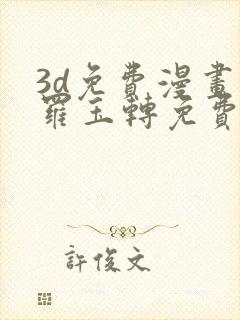 3d免費漫畫
羅玉轉免費
許俊文